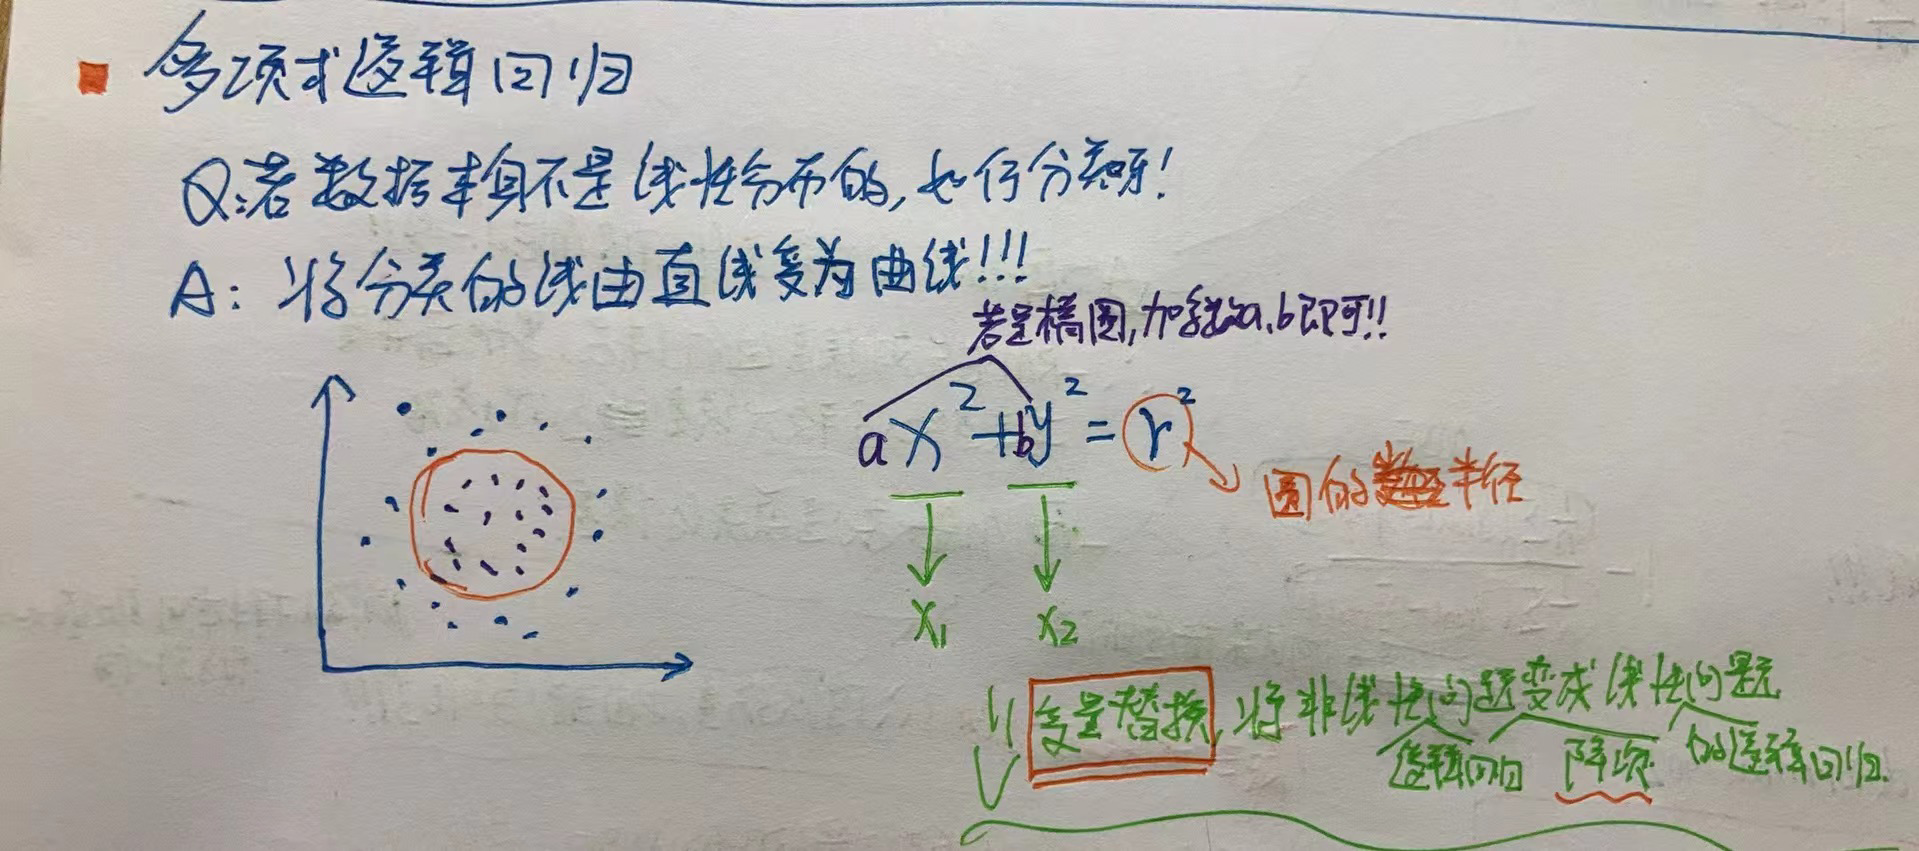 多项式逻辑回归
Q:若数据本身不是线性分布的,如何分类呀!
A: 将分类的线由直线变为曲线!!!
若是椭圆,加系数a、b即可!!
ax²+by²=r²
圆的半径
x₁ x₂
变量替换,将非线性问题变成线性问题
逻辑回归 降项 的逻辑回归.